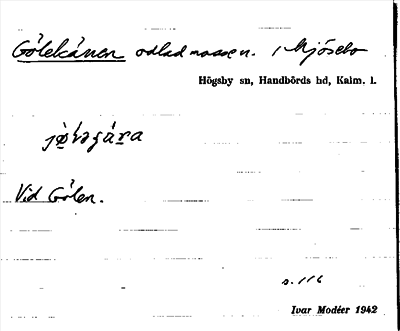 Gölekånen odlad mosse n. i Mjösebo
Högsby sn, Handbörds hd, Kalm. l.
Vid Gölen.
s. 116
Ivar Modéer 1942